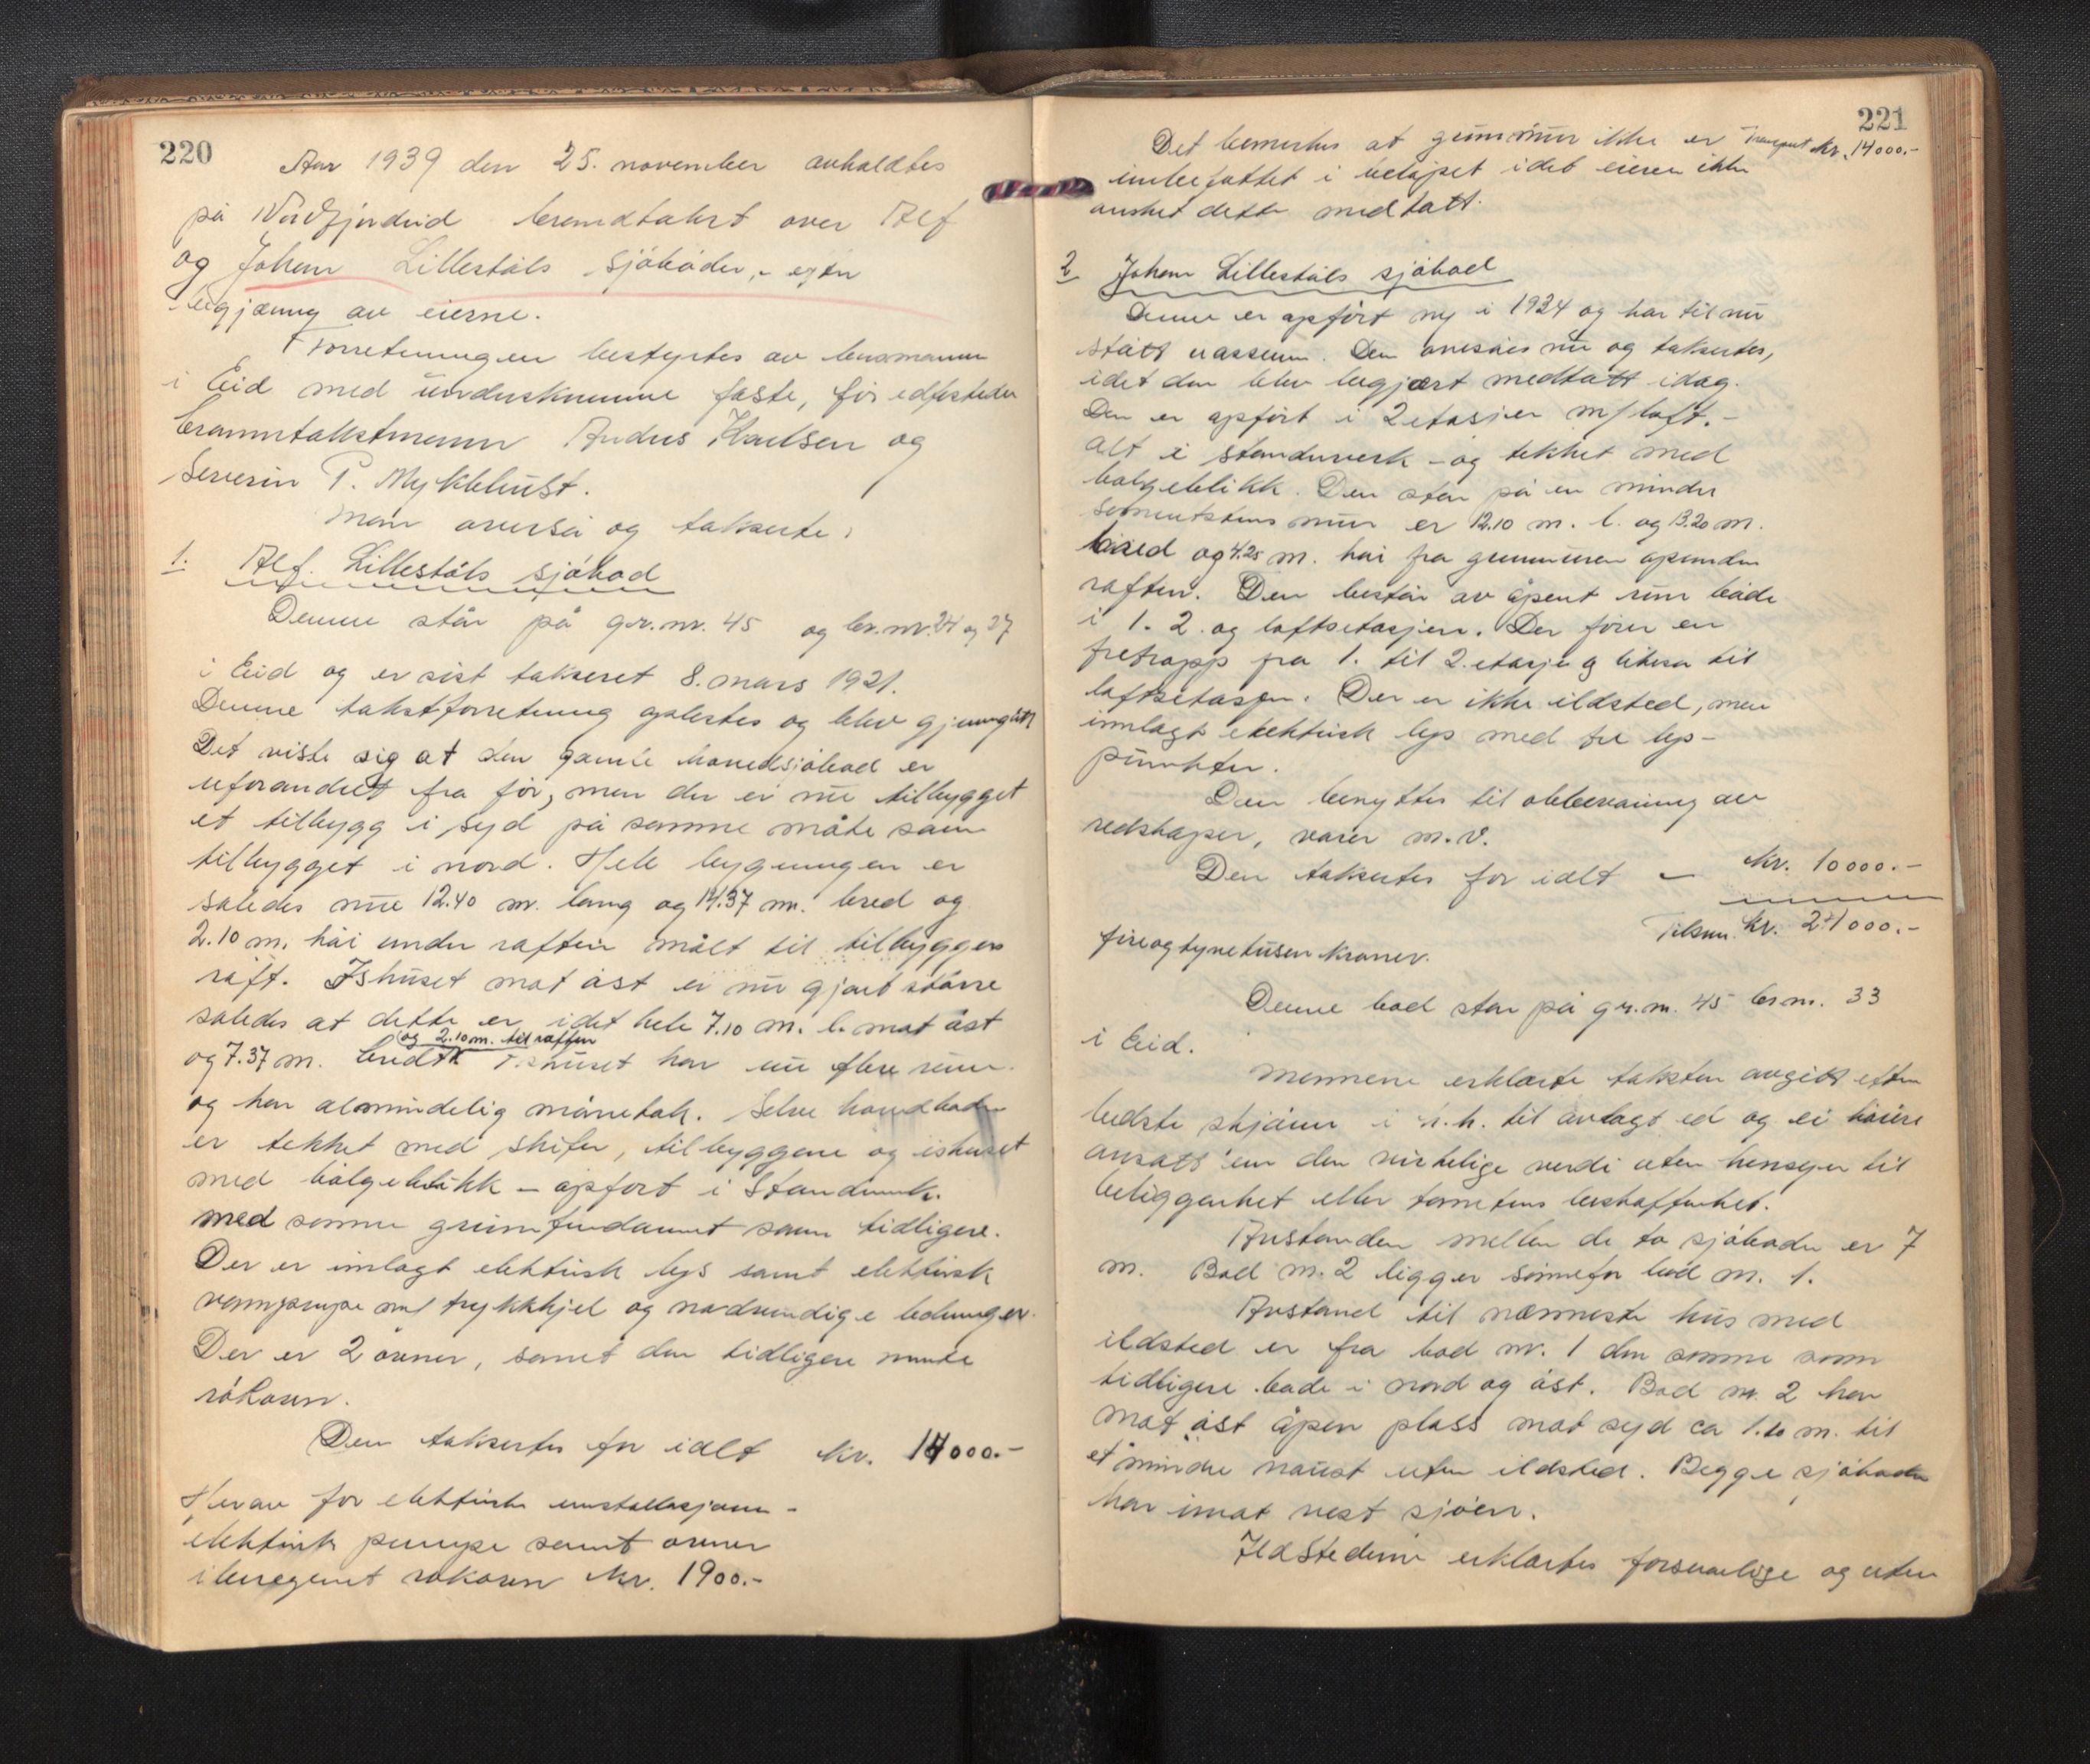 220
Aar 1939 den 25. november avholdtes
på Nordfjordeid branntakst over Alf
og Johan Lillestøls sjøboder, - efter
begjæring av eierne.
Forretningen bestyrtes av lensmannen
i Eid med underskrevne faste, før edfestede
branntakstmenn Andus Karlsen og
Severin P. Myklebust.
Men overså og takserte:
1. Alf. Lillestøls sjøbod
Denne står på gr.nr. 45 og br.nr. 24 og 27
i Eid og er sist taksert 8. mars 1921.
Denne takstforretning oplestes og blev gjenngått
Det viste sig at den gamle hovedsjøbod er
uforandret fra før, men der er nu tilbygget
et tilbygg i syd på samme måte som
tilbygget i nord. Hele bygningen er
således nu 12.40 m. lang og 14.37 m. bred og
2.10 m. høi under raften målt til tilbyggets
raft. Ishuset mot øst er nu gjort større
således at dette er idet hele 7.10 m. l. mot øst
og 2.10 m. til raften
og 7.37 m. bredt. Ishuset har nu flere rum
og har almindelig mønetak. Selve hovedboden
er tekket med skifer, tilbyggene og ishuset
med bølgeblikk - opført i standverk.
med samme grunnfundament som tidligere.
Der er innlagt elektrisk lys samt elektrisk
vannpumpe m/ trykkkjel og nødvendige ledninger.
Der er 2 ovner, samt den tidligere murte
røkovn.
Den takseres for ialt kr. 14000.-
Herav for elektriske installasjoner -
elektrisk pumpe samt ovner
iberegnet røkovn kr. 1900.-
221
Det bemerkes at grunnmur ikke er Transport kr. 14000.-
innbefattet i beløpet idet eieren ikke
ønsket dette medtatt.
2 Johan Lillestøls sjøbod
Denne er opført ny i 1934 og har til nu
stått uassurert. Den overåes nu og takseres,
idet den blev begjært medtatt idag.
Den er opført i 2 etasjer m/ loft. -
alt i standverk - og tekket med
bølgeblikk. Den står på en mindre
sementstens mur er 12.10 m. l. og 13.20 m.
bred og 4.25 m. høi fra grunnmuren opunder
raften. Den består av åpent rum både
i 1. 2. og loftsetasjen. Der fører en
tretrapp fra 1. til 2. etasje og likesa til
loftsetasjen. Der er ikke ildsted, men
innlagt elektrisk lys med tre lys-
punkter.
Den benyttes til opbevaring av
redskaper, varer m.v.
Den takseres for ialt - kr. 10000.-
Tilsam. kr. 24000.-
fireogtyvetusen kroner.
Denne bod står på gr.nr. 45 br.nr. 33
i Eid.
Mennene erklærte taksten avgitt efter
bedste skjønn i h.h. til avlagt ed og ei høiere
ansatt enn den virkelige verdi uten hensyn til
beliggenhet eller tomtens beskaffenhet.
Avstanden mellem de to sjøboder er 7
m. Bod nr. 2 ligger sønnefor bod nr. 1.
Avstand til nærmeste hus med
ildsted er fra bod nr. 1 den samme som
tidligere både i nord og øst. Bod nr. 2 har
mot øst åpen plass mot syd ca 1.10 m. til
et mindre naust uten ildsted. Begge sjøboder
har imot vest sjøen.
Ildstedene erklærtes forsvarlige og uten